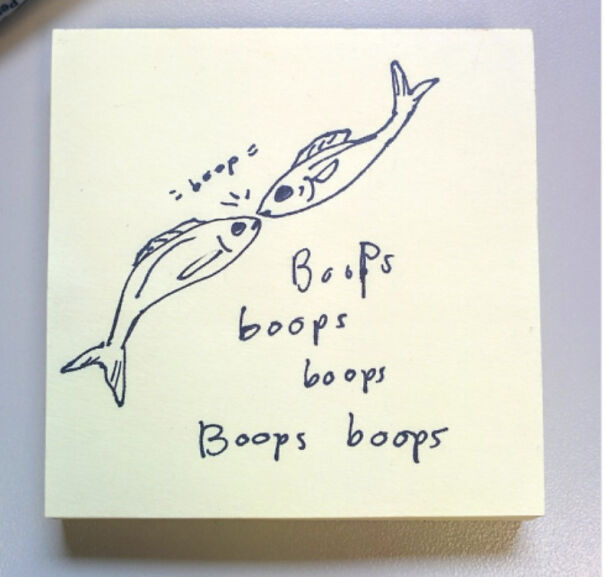 boop
Boops
boops
boops
Boops boops